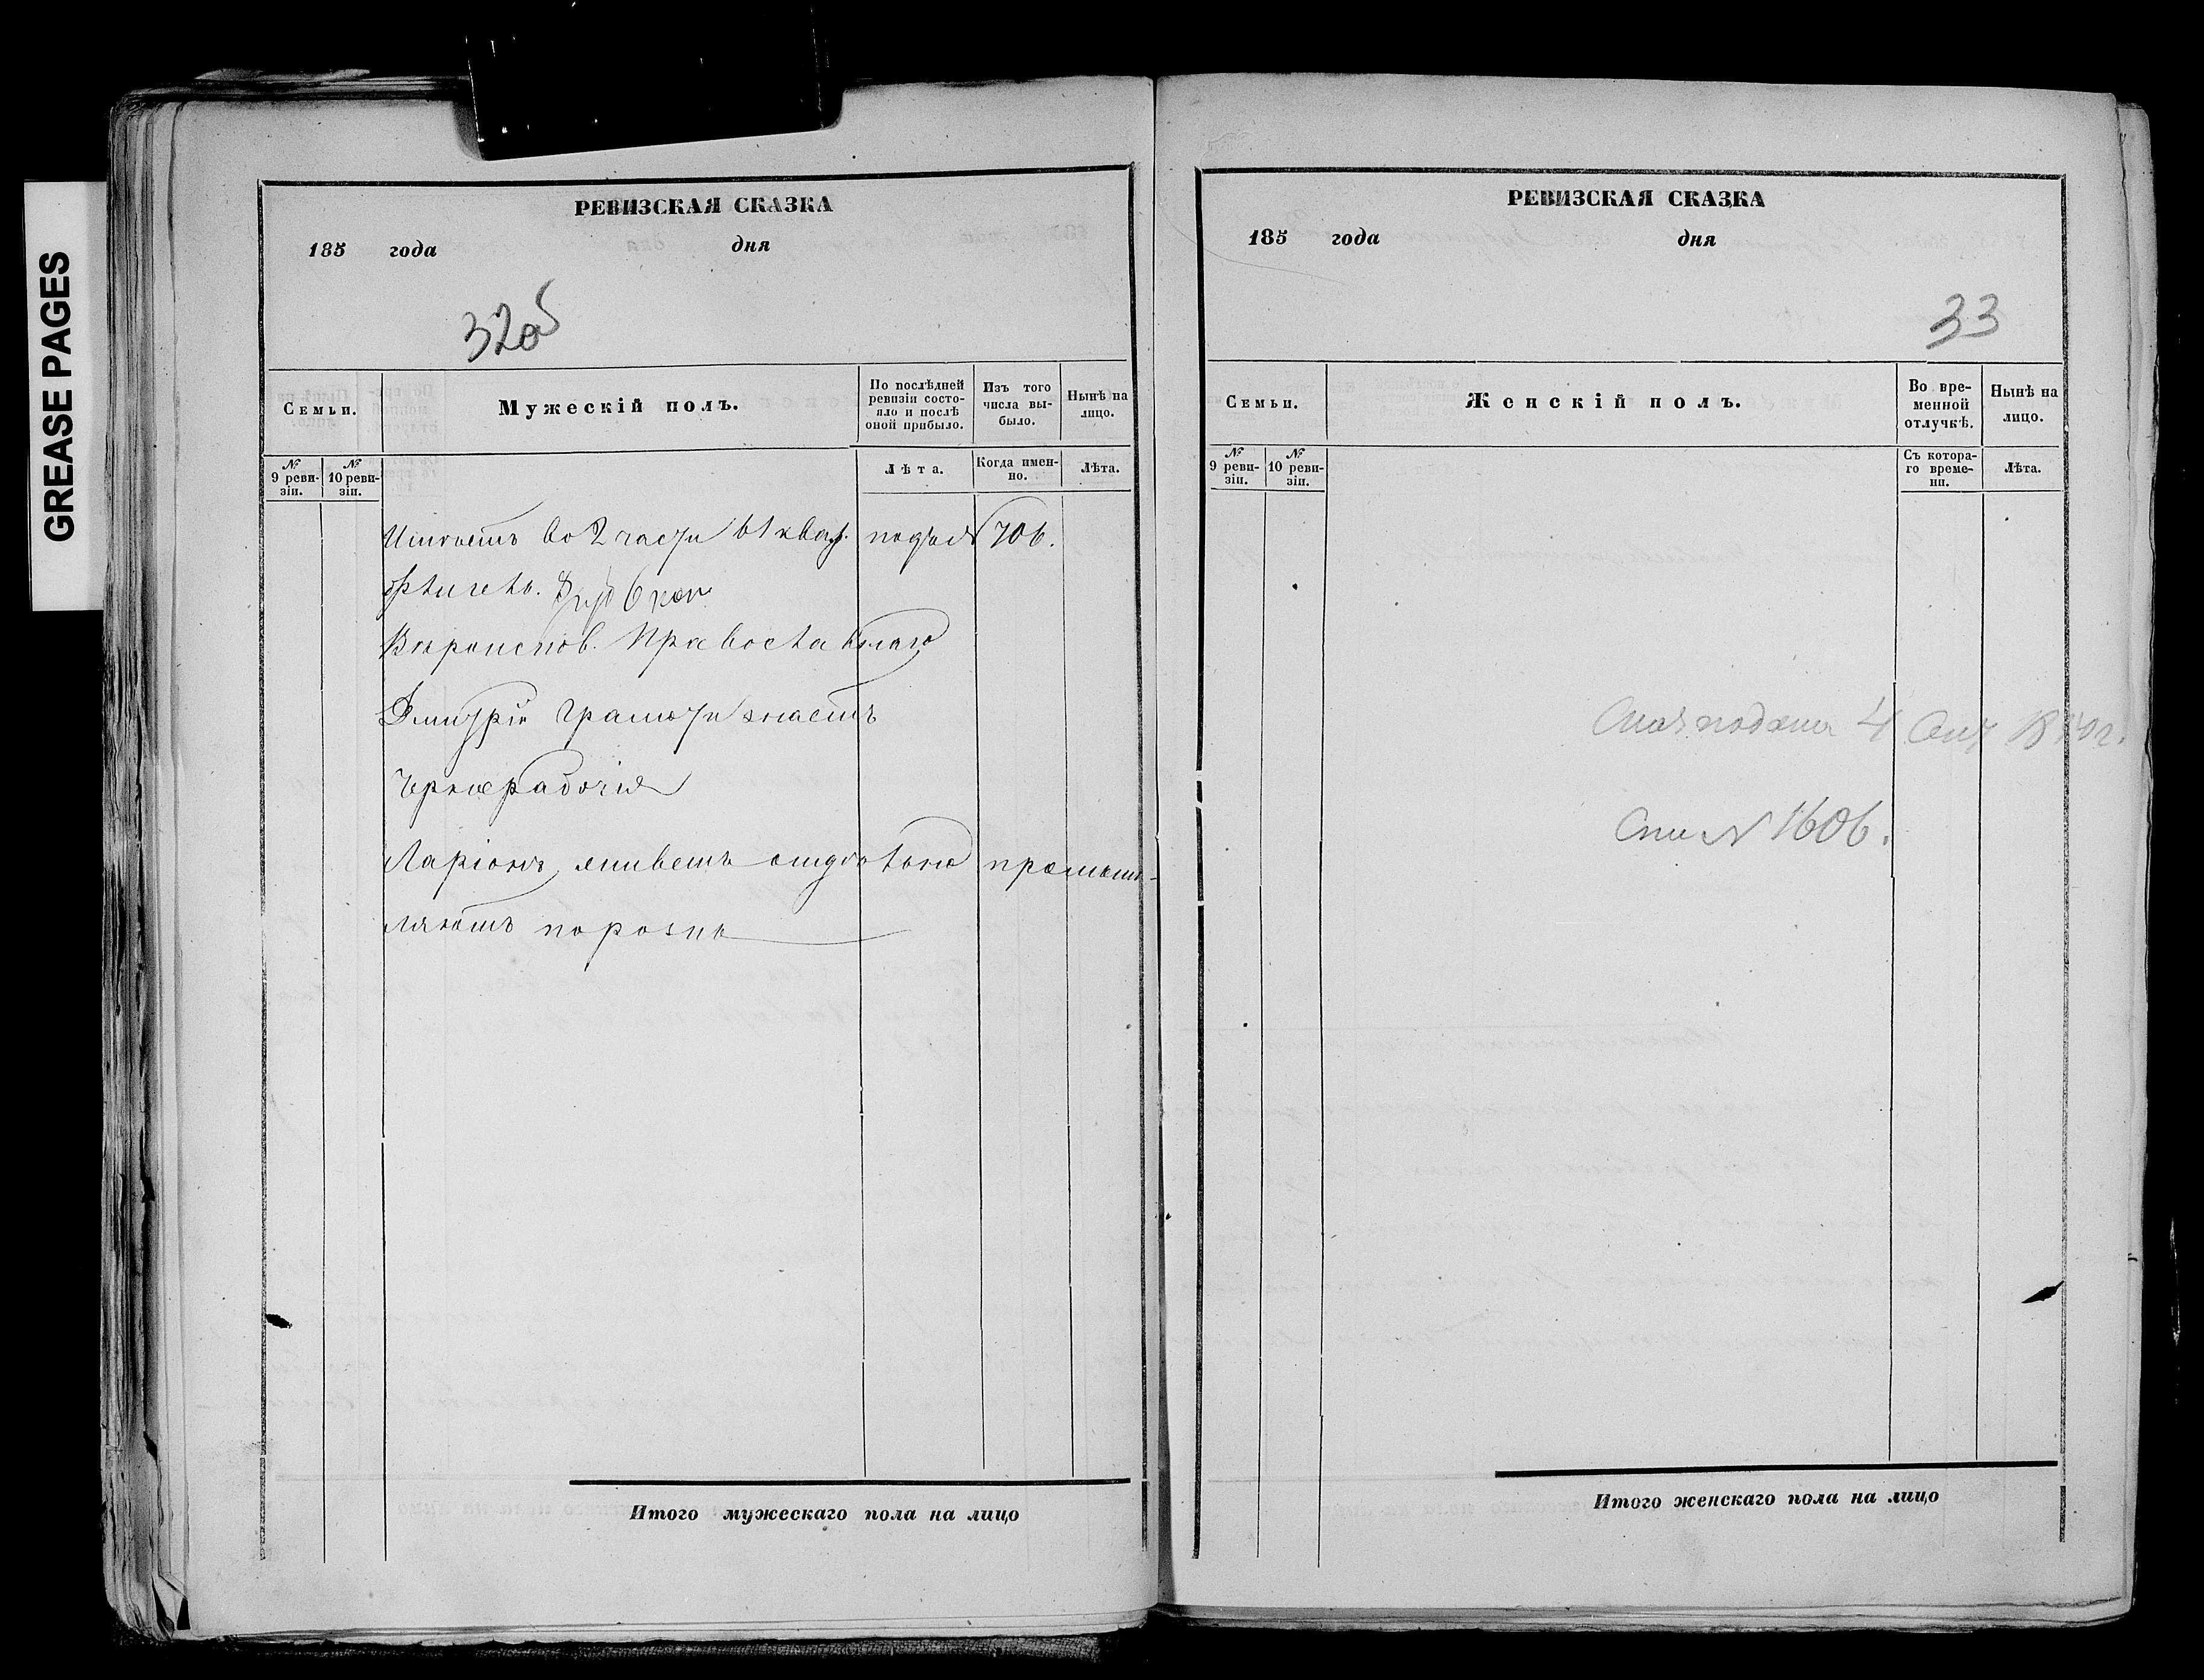 GREASE PAGES
РЕВИЗСКАЯ СКАЗКА
185 года дня
32об
Семьи.
Мужескій полъ.
По послѣдней ревизіи состояло и послѣ оной прибыло.
Изъ того числа выбыло.
Нынѣ на лицо.
№ 9 ревизіи.
№ 10 ревизіи.
Лѣта.
Когда именно.
Лѣта.
во 2 части в 1 квар. подъ № 706.
6 коп
Вѣроисповѣ. Православнаго
Дмитрій Грамоти знаетъ
Чернорабочія
Ларіонъ живетъ отдѣльно промыш-
ляютъ порознь
Итого мужескаго пола на лицо
РЕВИЗСКАЯ СКАЗКА
185 года дня
33
Семьи.
Женскій полъ.
Во временной отлучкѣ.
Нынѣ на лицо.
№ 9 ревизіи.
№ 10 ревизіи.
Съ котораго времени.
Лѣта.
подана 4
№ 1606.
Итого женскаго пола на лицо